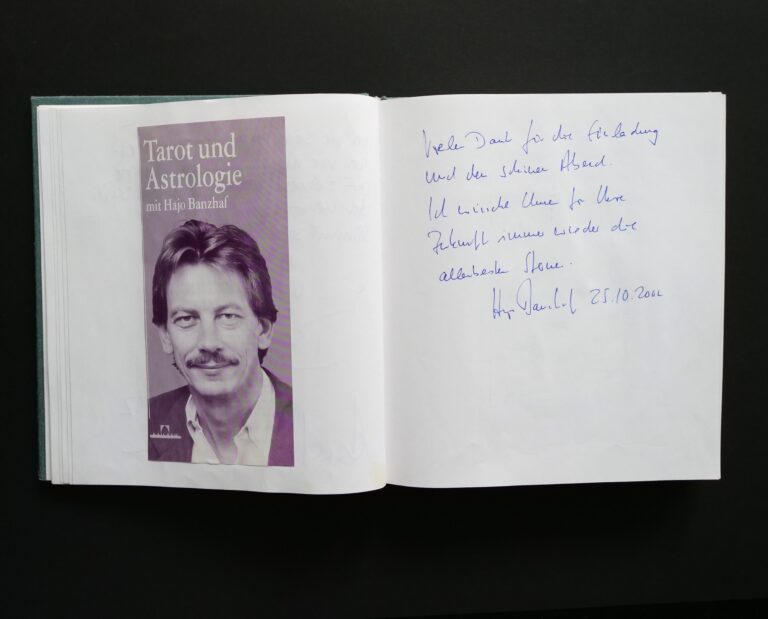 Tarot und
Astrologie
mit Hajo Banzhaf
Vielen Dank für die Einladung
und den schönen Abend.
Ich wünsche Ihnen für Ihre
Zukunft immer wieder die
allerbesten Sterne.
Hajo Banzhaf 25.10.2002